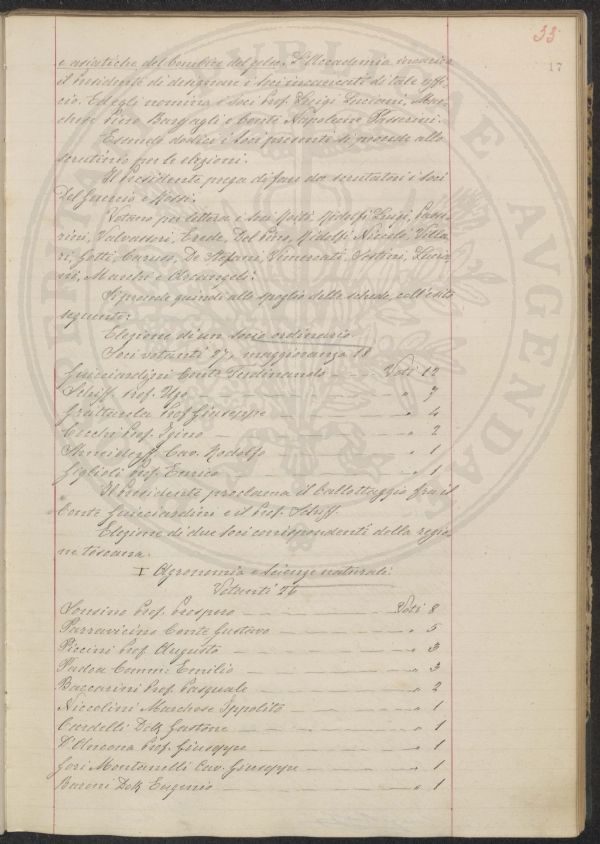 33
17
e asiatiche del bombice del gelso. L'Accademia incarica
il Presidente di designare i Soci incaricati di tale uffi-
cio. Ed egli nomina i Soci Prof. Luigi Luciani, Mar-
chese Piero Bargagli e Conte Napoleone Passerini.
Essendo dodici i Soci presenti si procede allo
scrutinio per le elezioni.
Il Presidente prega di fare da scrutatori i Soci
Del Guercio e Rossi.
Votano per lettera i Soci Ridolfi Luigi, Passe-
rini, Valvassori, Erede, Del Puro, Ridolfi Niccolò, Villa-
ri, Gotti, Caruso, De Stefani, Vimercati, Sestini, Lucia-
ni, Marchi e Arcangeli.
Si procede quindi allo spoglio delle schede, coll'esito
seguente:
Elezione di un socio ordinario.
Soci votanti 27, maggioranza 18
Guicciardini Conte Ferdinando — Voti 12
Schiff Prof. Ugo — " 7
Grattarola Prof Giuseppe — " 4
Cecchi Prof. Igino — " 2
Cav. Rodolfo — " 1
Giglioli Prof. Enrico — " 1
Il Presidente proclama il ballottaggio fra il
Conte Guicciardini e il Prof. Schiff.
Elezione di due Soci corrispondenti della regio-
ne toscana.
I Agronomia e scienze naturali.
Votanti 26
Sonsino Prof. Prospero — Voti 8
Parravicino Conte Gustavo — " 5
Piccini Prof. Augusto — " 3
Padoa Comm. Emilio — " 3
Baccarini Prof. Pasquale — " 2
Niccolini Marchese Ippolito — " 1
Cardelli Dott. Gastone — " 1
D'Ancona Prof. Giuseppe — " 1
Gori Montanelli Cav. Giuseppe — " 1
Baroni Dott. Eugenio — " 1